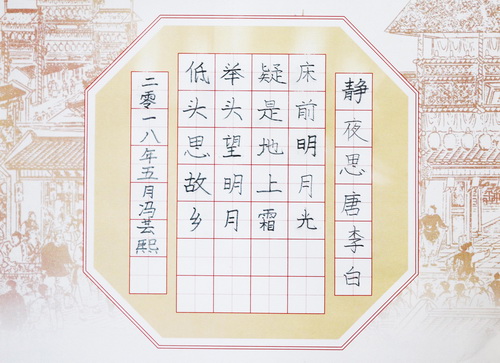 静夜思唐李白
床前明月光
疑是地上霜
举头望明月
低头思故乡
二零一八年五月冯芸熙